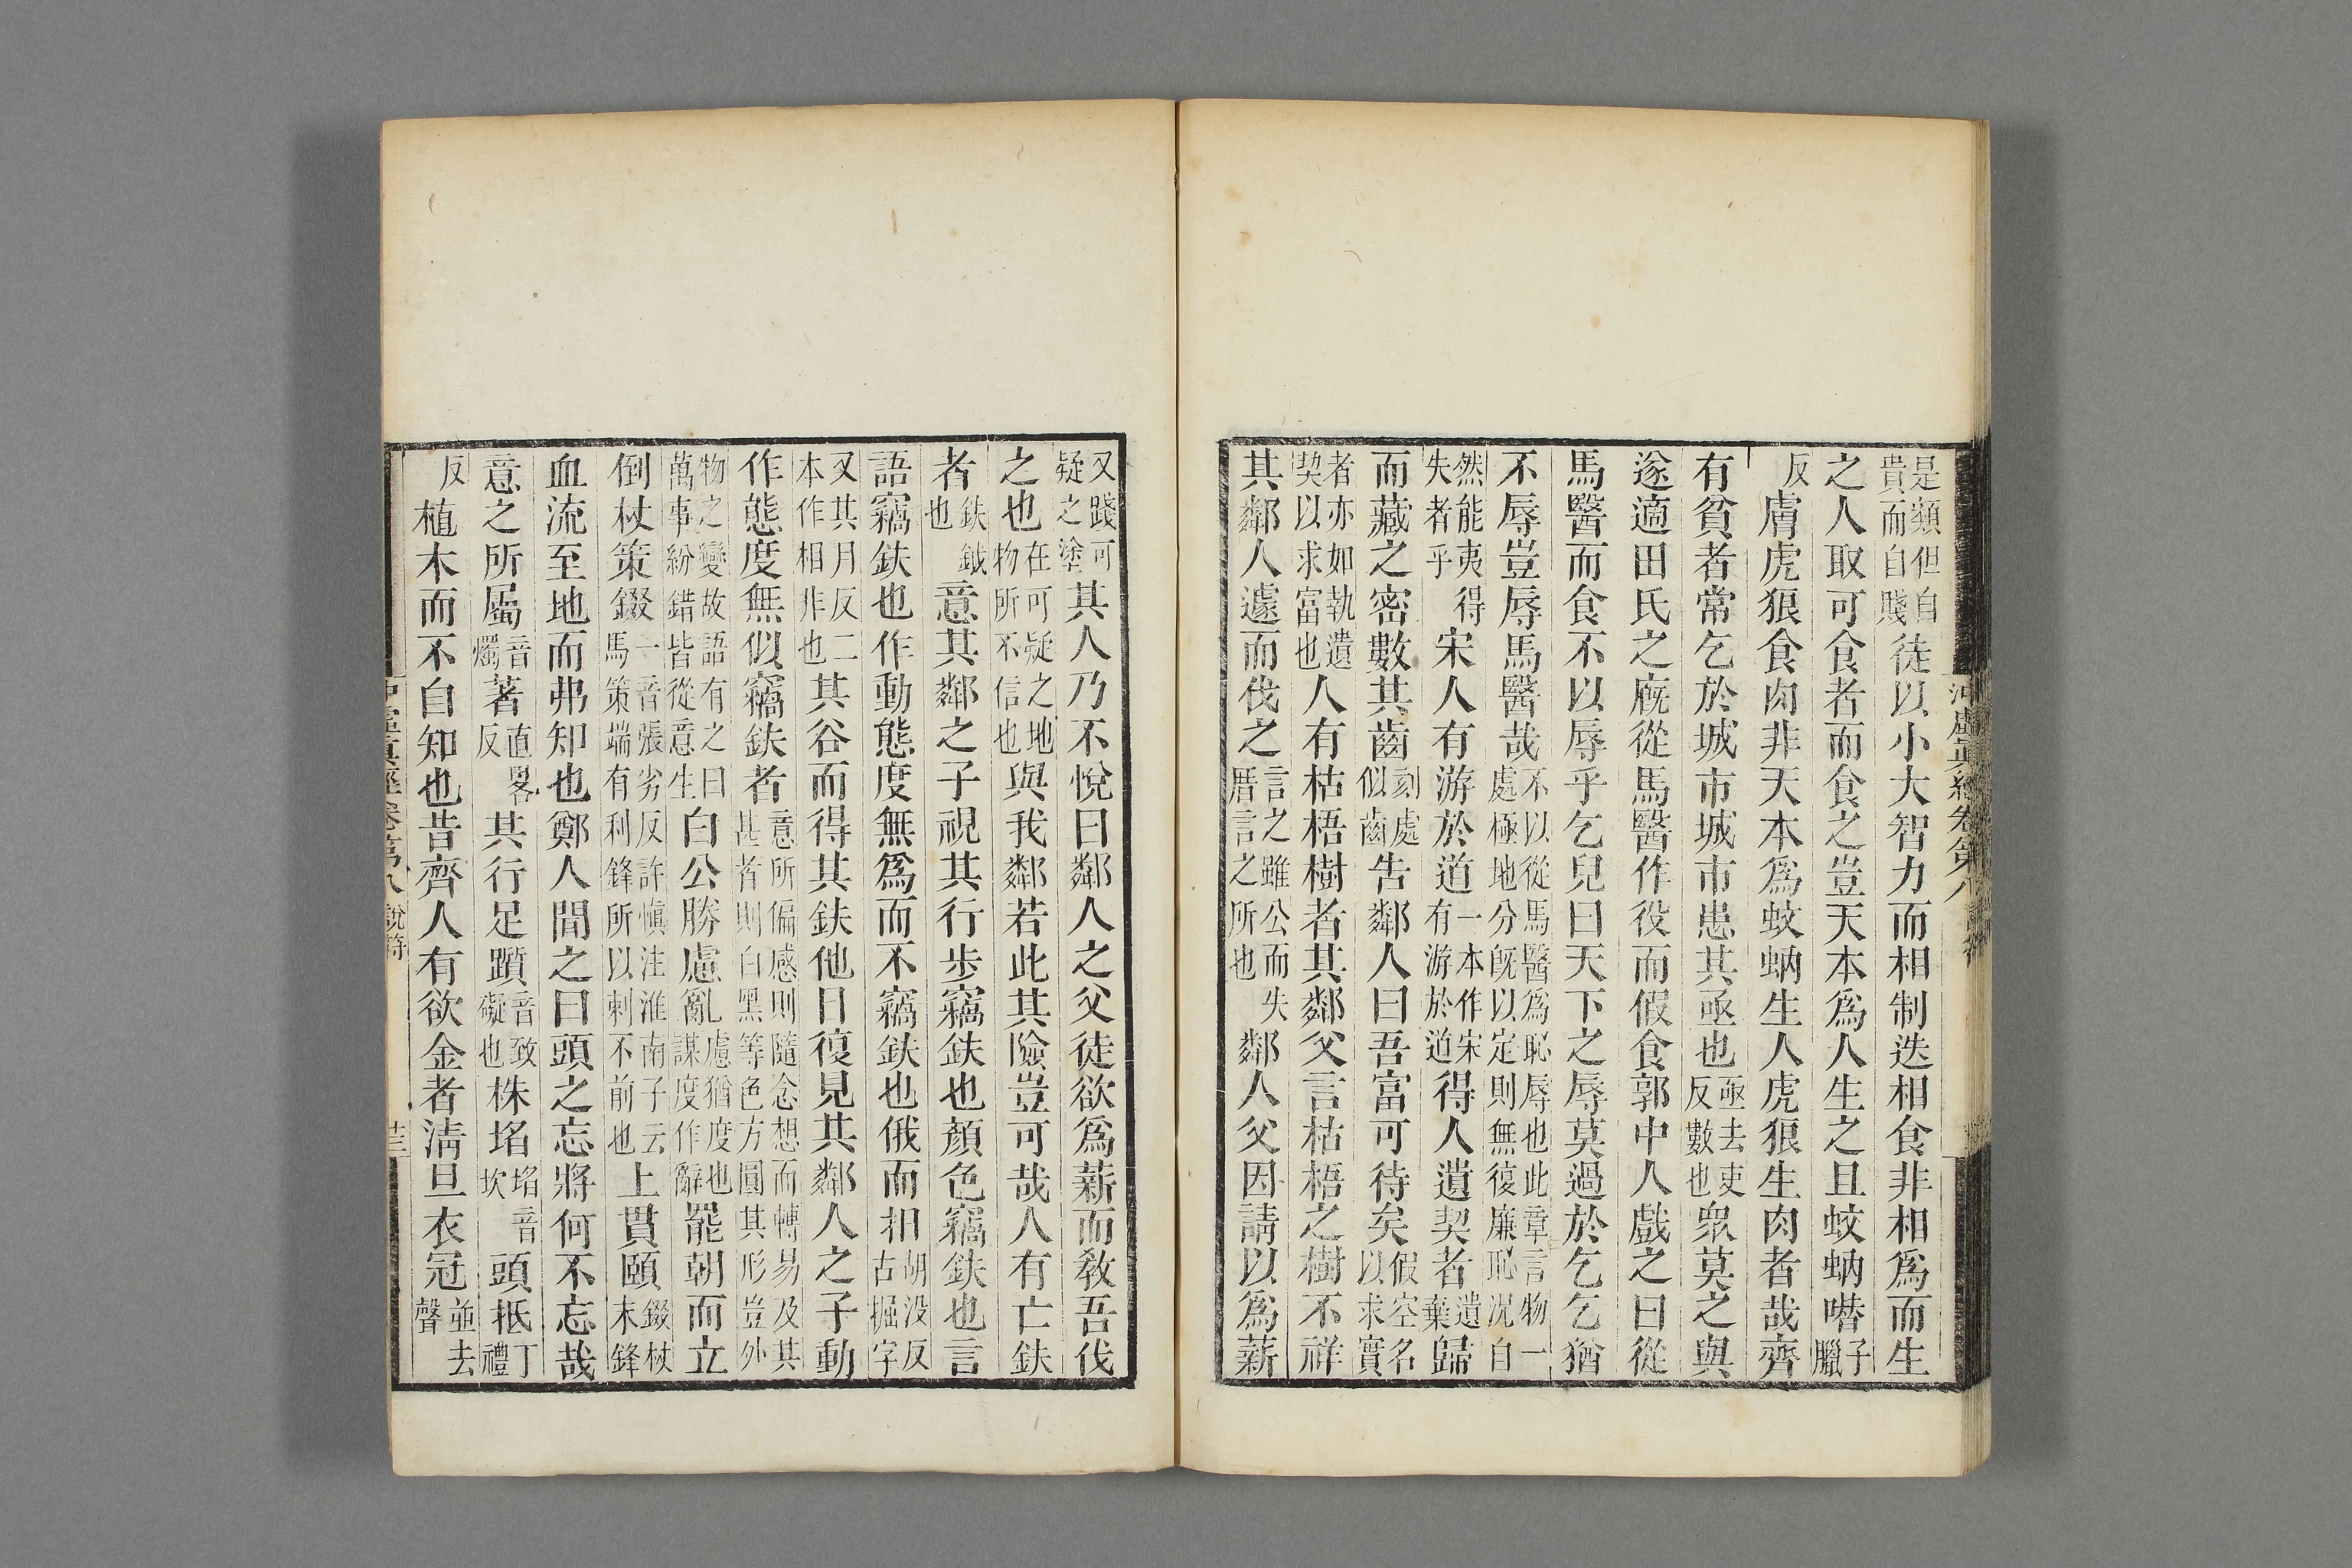 沖虛眞經卷第八
是類但自貴而自賤徒以小大智力而相制迭相食非相爲而生
之人取可食者而食之豈天本爲人生之且蚊蚋噆子臘
反膚虎狼食肉非天本爲蚊蚋生人虎狼生肉者哉齊
有貧者常乞於城市城市患其亟也亟去吏反數也衆莫之與
遂適田氏之廐從馬醫作役而假食郭中人戲之曰從
馬醫而食不以辱乎乞兒曰天下之辱莫過於乞乞猶
不辱豈辱馬醫哉不以從馬醫爲恥辱也此章言物一處極地分旣以定則無復廉恥况自
然能夷得失者乎宋人有游於道一本作宋有游於道得人遺契者遺棄歸
而藏之密數其齒刻處似齒告鄰人曰吾富可待矣假空名以求實
者亦如執遺契以求富也人有枯梧樹者其鄰父言枯梧之樹不祥
其鄰人遽而伐之言之雖公而失厝言之所也鄰人父因請以爲薪
又踐可疑之塗其人乃不悅曰鄰人之父徒欲爲薪而敎吾伐
之也在可疑之地物所不信也與我鄰若此其險豈可哉人有亡鈇
者鈇鉞也意其鄰之子視其行步竊鈇也顏色竊鈇也言
語竊鈇也作動態度無爲而不竊鈇也俄而抇胡没反古掘字
又其月反二本作相非也其谷而得其鈇他日復見其鄰人之子動
作態度無似竊鈇者意所偏感則隨念想而轉易及其甚者則白黑等色方圓其形豈外
物之變故語有之曰萬事紛錯皆從意生白公勝慮亂慮猶度也謀度作辭罷朝而立
倒杖策錣一音張劣反許愼注淮南子云馬策端有利鋒所以刺不前也上貫頤錣杖末鋒
血流至地而弗知也鄭人聞之曰頤之忘將何不忘哉
意之所屬音燭著直畧反其行足躓音致礙也株埳埳音坎頭抵丁禮
反植木而不自知也昔齊人有欲金者淸旦衣冠並去聲
沖虛眞經卷第八 說符 廿三